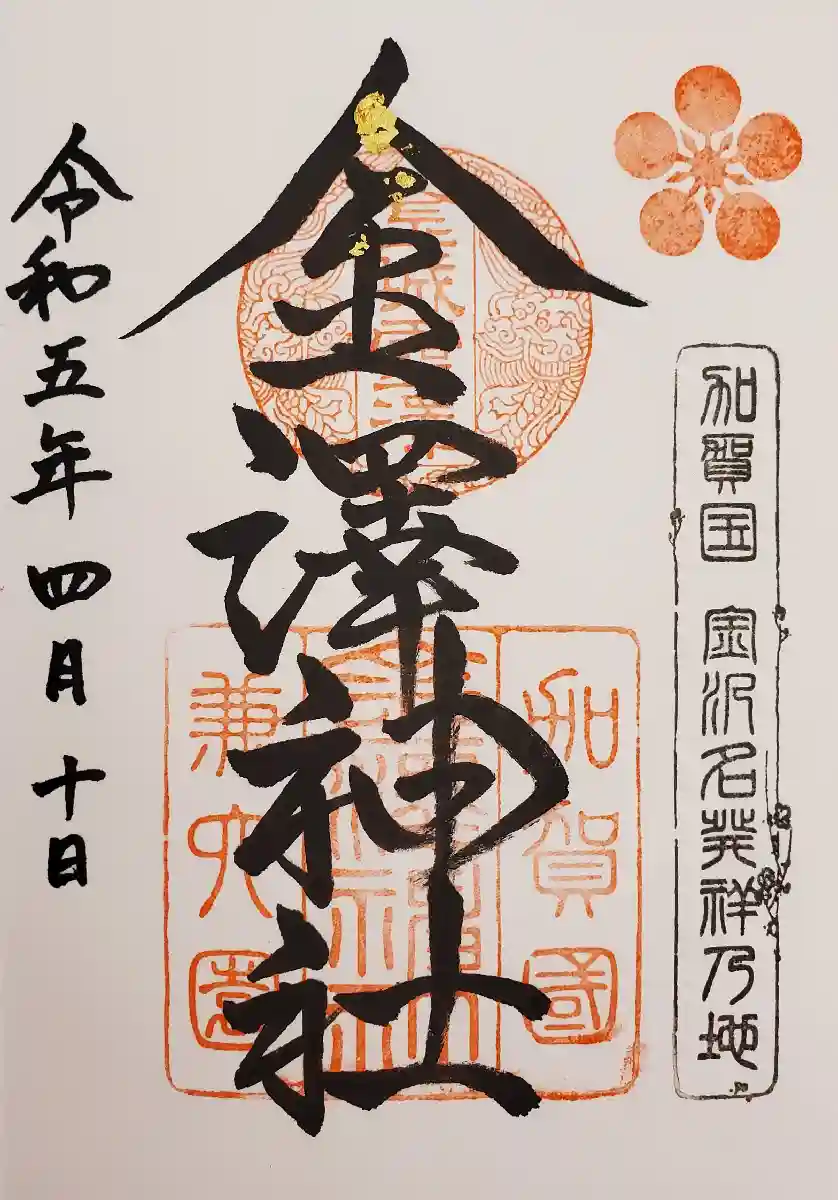 加賀国 金沢名発祥乃地
金澤神社
加賀國
金澤神社
兼六園
令和五年四月十日